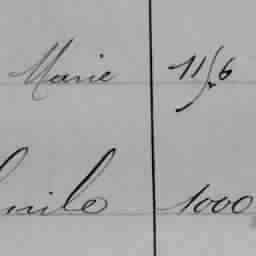 Marie 1156
mile 1000